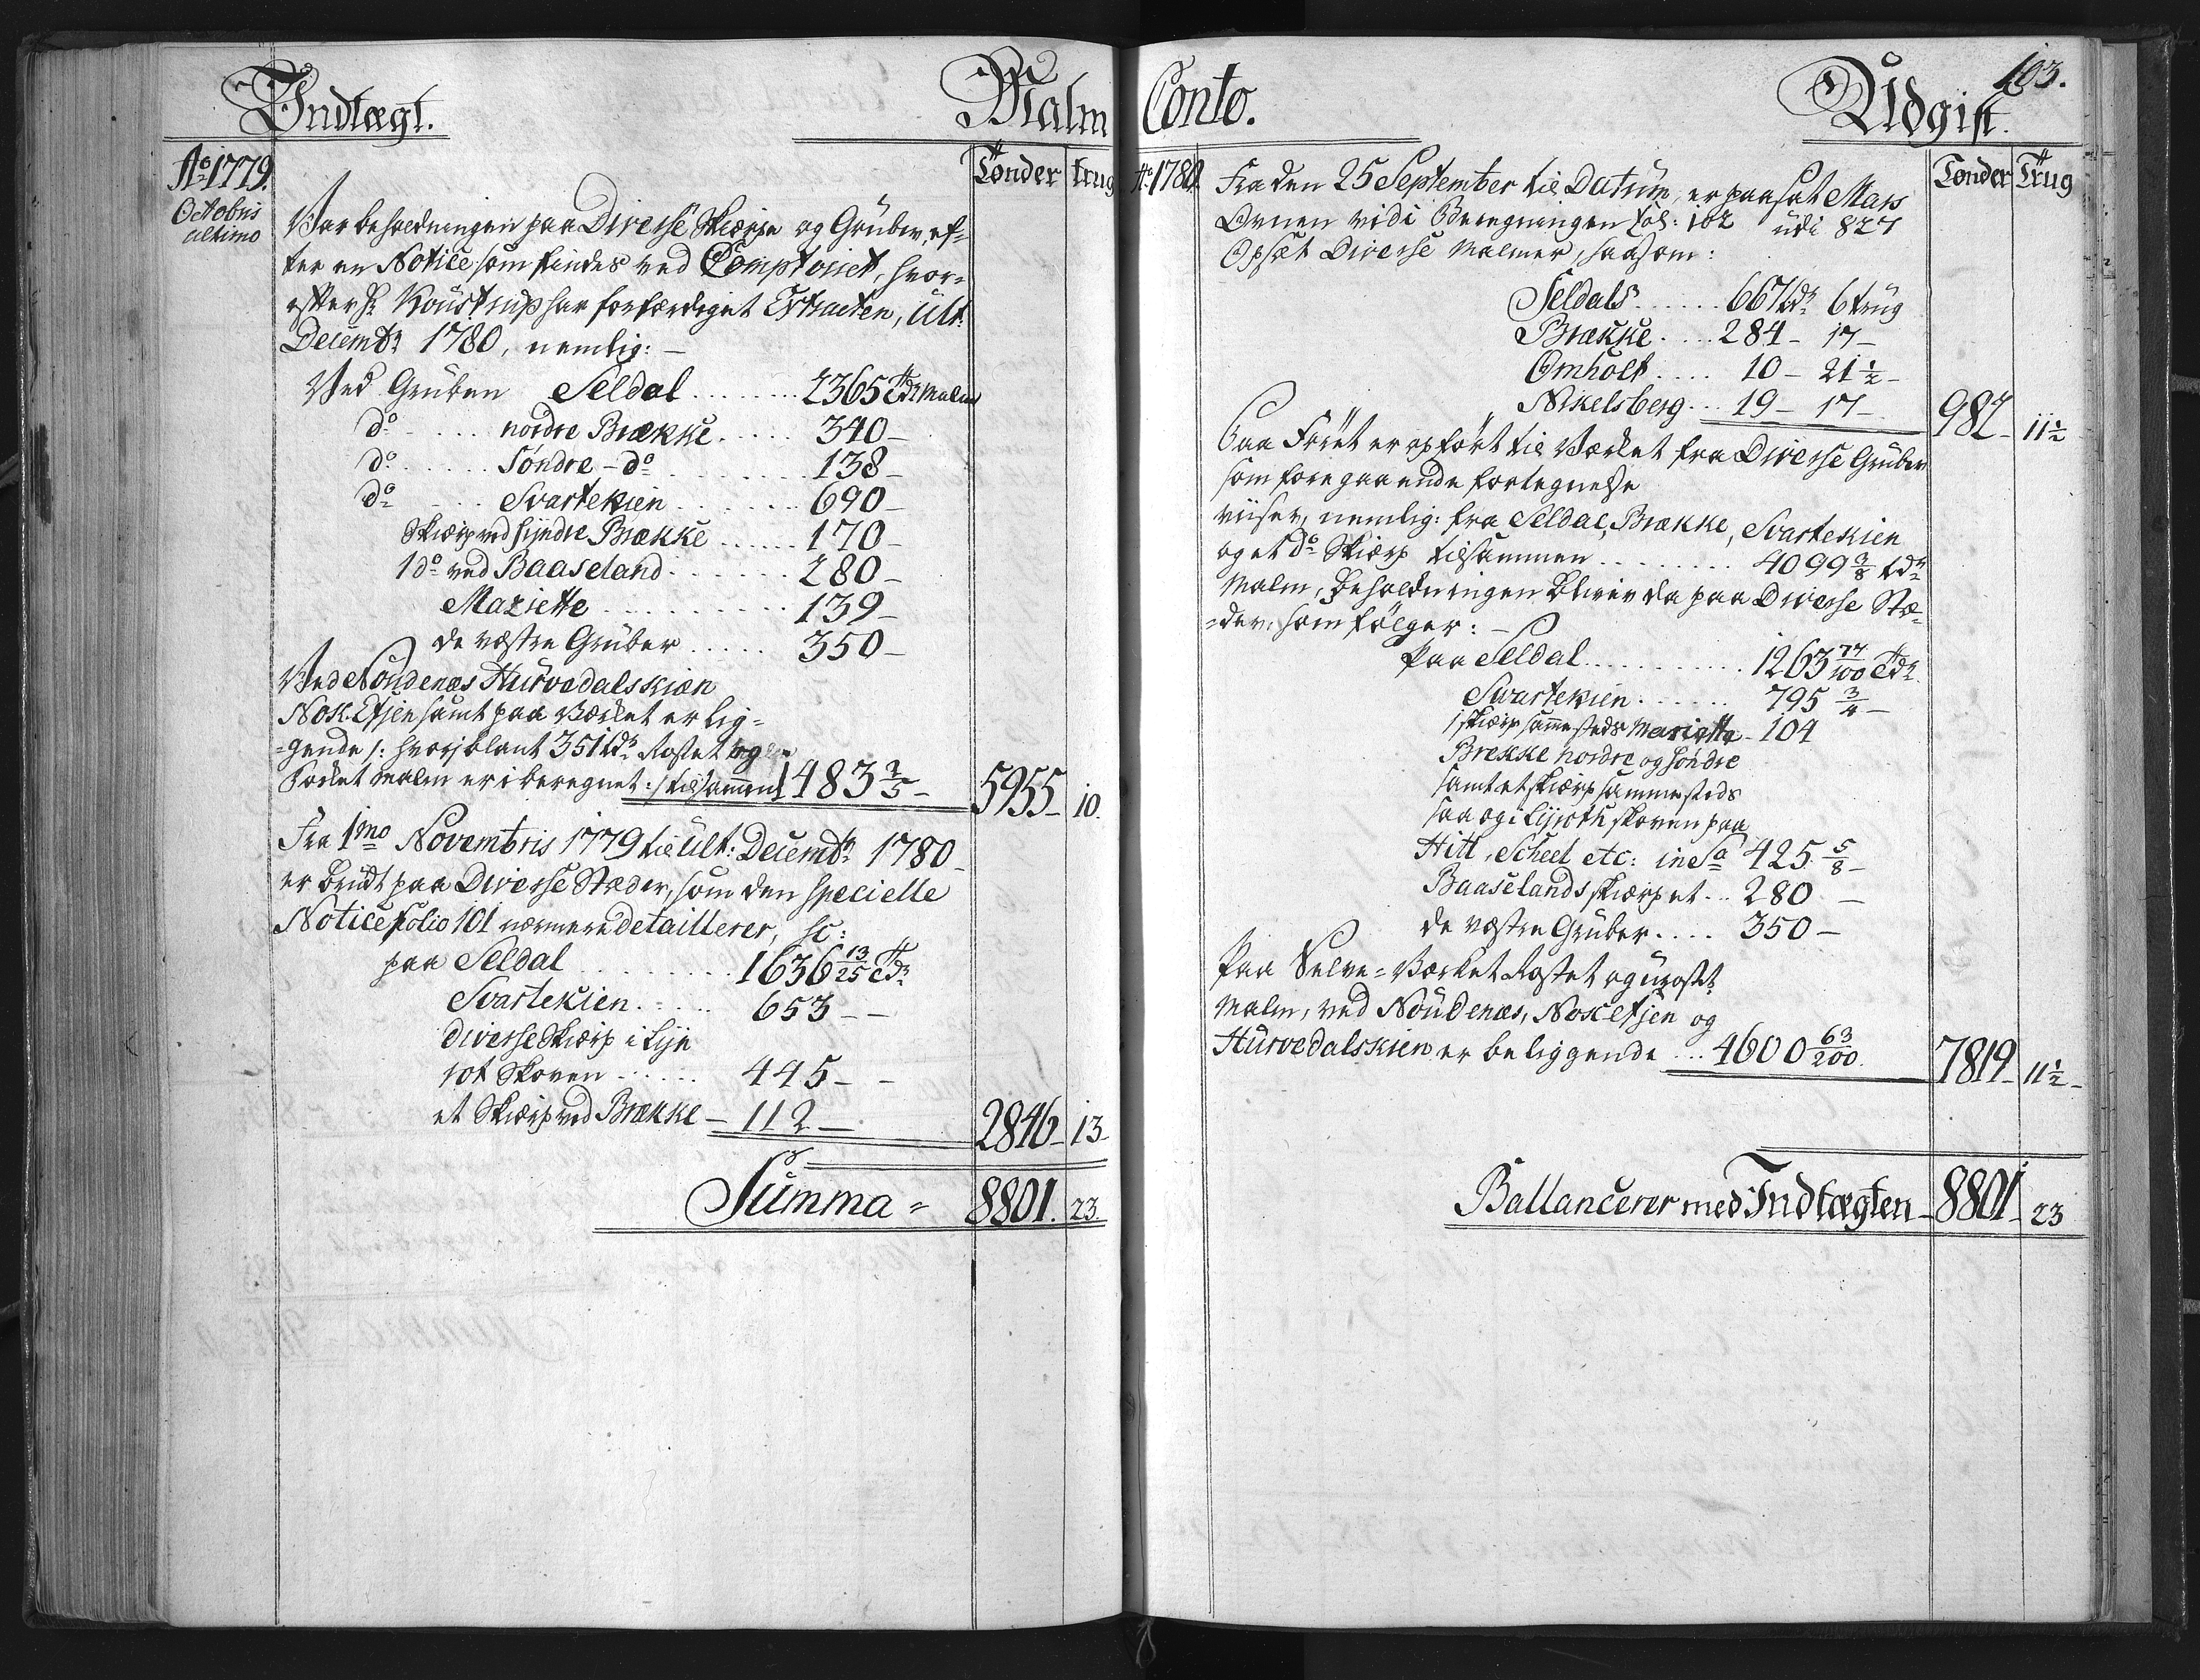 Indtægt.
Malm
Tønder
trug
Ao 1779.
Octobris
ultimo
Var beholdningen paa Diverse Skierpe og Gruber, ef-
ter en Notice som findes ved Comptoiret, hvor-
efter Hr Koustrup har forfærdiget Extracten, Ult:
Decembr 1780, nemlig: -
Ved Gruben Seldal ........ 2365 Tdr Malm
do .... nordre Brække ..... 340 -
do ..... Søndre - do ....... 138 -
do .... Svartekien ....... 690 -
Skierp ved syndre Brække ...... 170 -
1 do ved Baaseland ....... 280 -
Mariette .......... 139 -
de vestre Gruber ..... 350 -
Ved Noudenæs Hurvedalskien
Nox. Efjen samt paa Verket er lig-
=gende /: hvorjblant 351 tdr Rostet og
Pocket Malm er i beregnet :/ tilsammen 1483 2/5 -
5955 - 10.
Fra 1mo Novembris 1779 til Ult: Decembr 1780 -
er brudt paa Diverse Steder, som den specielle
Notice folio 101 nærmere detaillerer, sc:
paa Seldal ........ 1636 13/25 Tdr
Svartekien ..... 653 - -
diverse Skierp i Lyn
rot Skoven ...... 445 - -
et Skierp ved Brække - 112 -
2846 - 13 -
Summa = 8801. 23.
103.
Conto.
Udgift.
Tønder
Trug
Ao 1780.
Fra den 25 September til Datum, er paasat Mas
Ovnen vidi Beregningen fol: 102 udi 827
Opsæt Diverse Malmer, saasom:
Seldals ...... 667 tdr 6 trug
Brække .... 284 - 17 -
Omholt .... 10 - 21 1/2 -
Nikelsberg ... 19 - 17 -
982 - 11 1/2
Paa Føret er opført til Værket fra Diverse Gruber
som foregaaende fortegnelse
viiser, nemlig: fra Seldal, Brække, Svartekien
og et do Skierp tilsammen ........ 4099 3/8 tdr
Malm, Beholdningen bliver da paa Diverse Stæ-
=der: som følger: -
Paa Seldal .......... 1263 77/100 Tdr
Svartekien ...... 795 3/4 -
1 skierp sammesteds Mariette - 104
Brekke nordre og søndre
samt et skierp sammesteds
saa og i Lijnroth skoven paa
Hitt, Scheel etc: in Sa 425 5/8 -
Baaselands skierpet .. 280 -
de vestre Gruber .... 350 -
Paa Selve = Værket Rostet og urostet
Malm, ved Noudenæs, Noxefjen og
Hurvedalskien er beliggende ... 4600 63/200
7819 - 11 1/2 -
Ballancerer med Indtægten - 8801 - 23